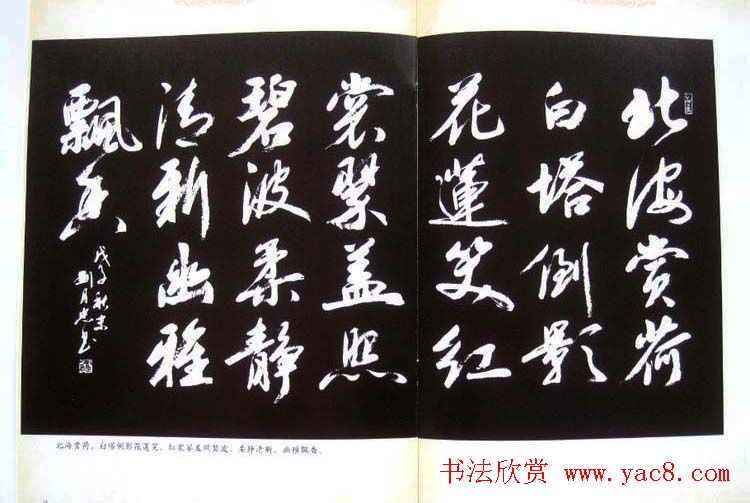 北海赏荷
白塔倒影
花蓮笑红
裳翠盖照
碧波柔静
清新幽雅
飄香
戊子秋末
北海赏荷。白塔倒影花莲笑，红裳翠盖照碧波。柔静清新，幽雅飘香。
书法欣赏 www.yac8.com